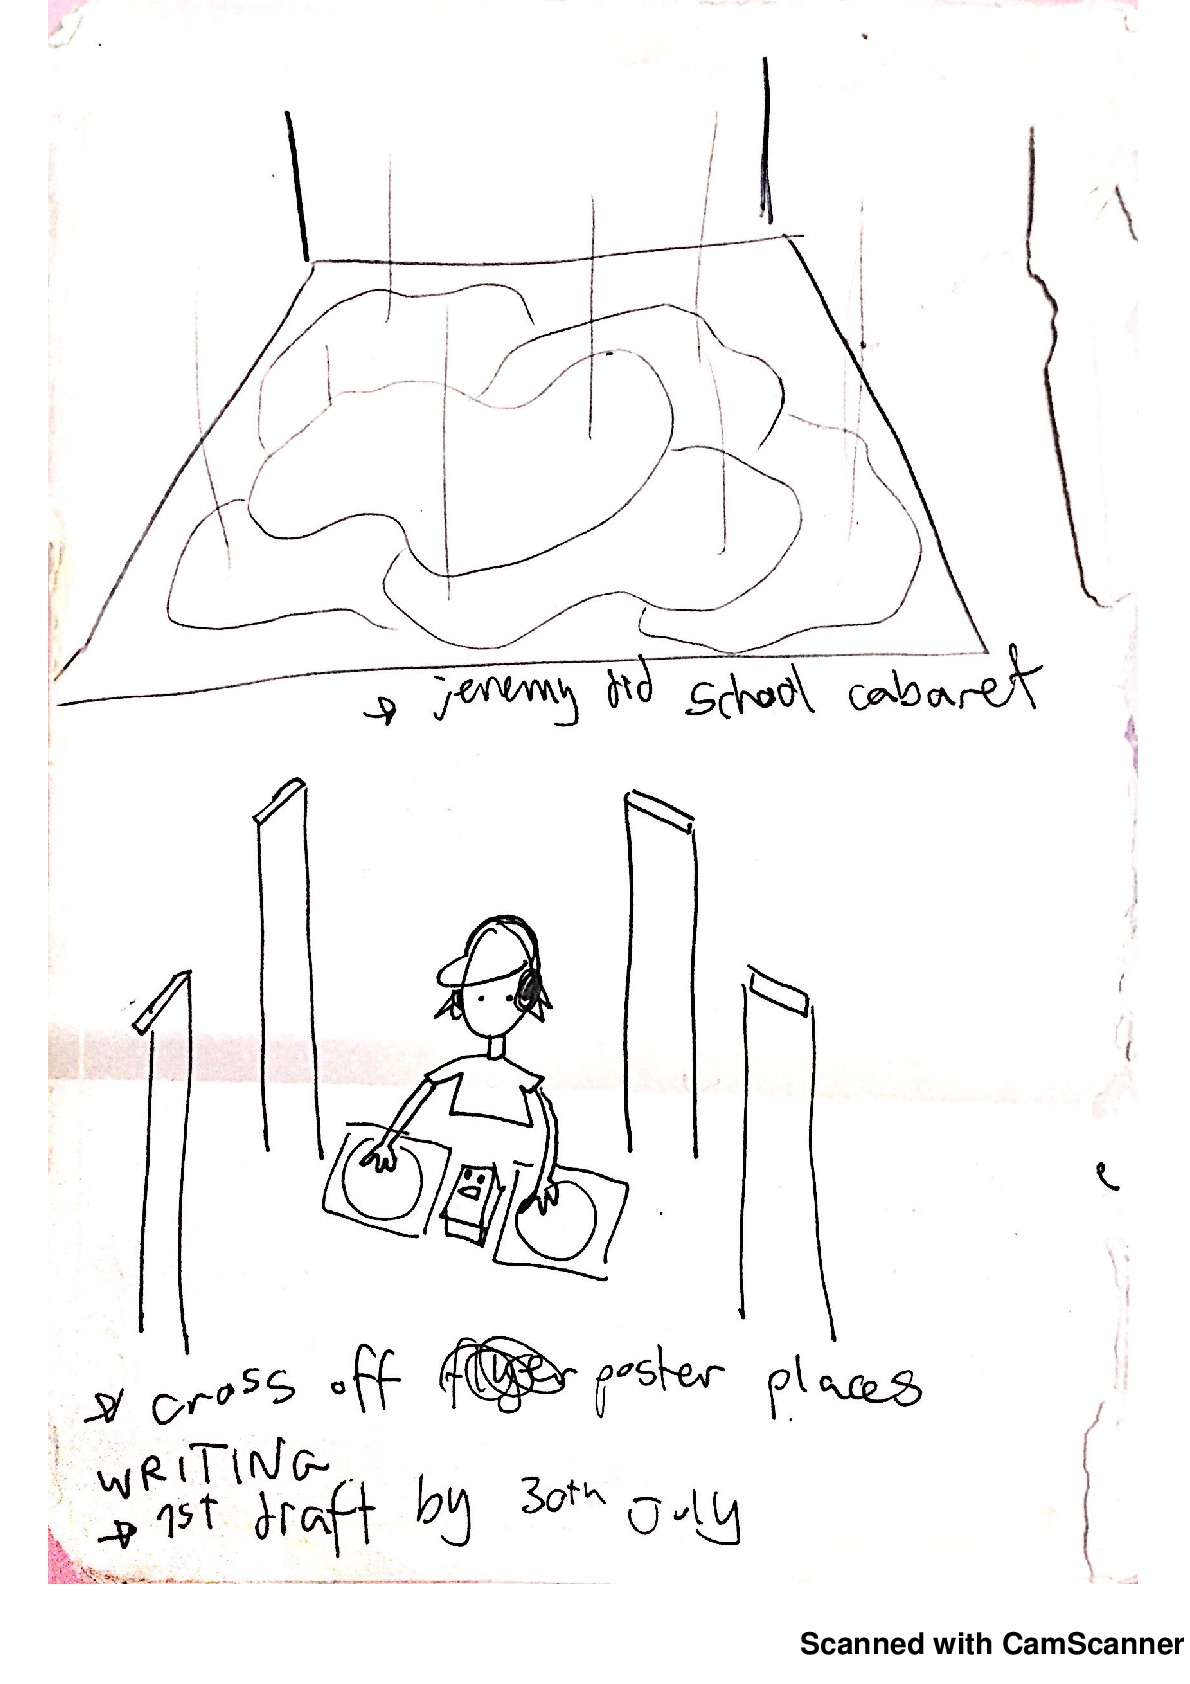 → jeremy did school cabaret
→ cross off flyer poster places
WRITING
→ 1st draft by 30th July
Scanned with CamScanner